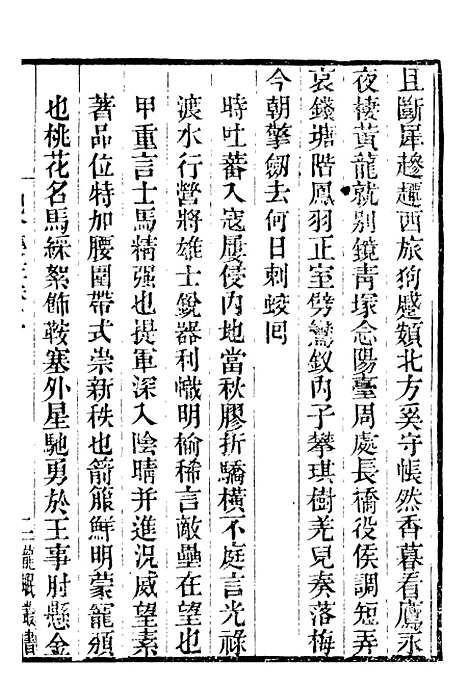 且斷犀趁趯西旅狗蹙額北方奚守帳然香暮看鷹永
夜棲黃龍就別鏡靑塚念陽臺周處長橋役侯調短弄
哀錢塘階鳳羽正室劈鸞釵內子攀琪樹羌兒奏落梅
今朝擎劒去何日刺蛟囘
時吐蕃入寇屢侵內地當秋膠折驕橫不庭言光祿
渡水行營將雄士銳器利幟明榆稀言敵壘在望也
甲重言士馬精强也提軍深入陰晴并進況威望素
著品位特加腰圍帶式崇新秩也箭箙鮮明蒙寵頒
也桃花名馬綵絮飾鞍塞外星馳勇於王事肘懸金
二 龍威叢書